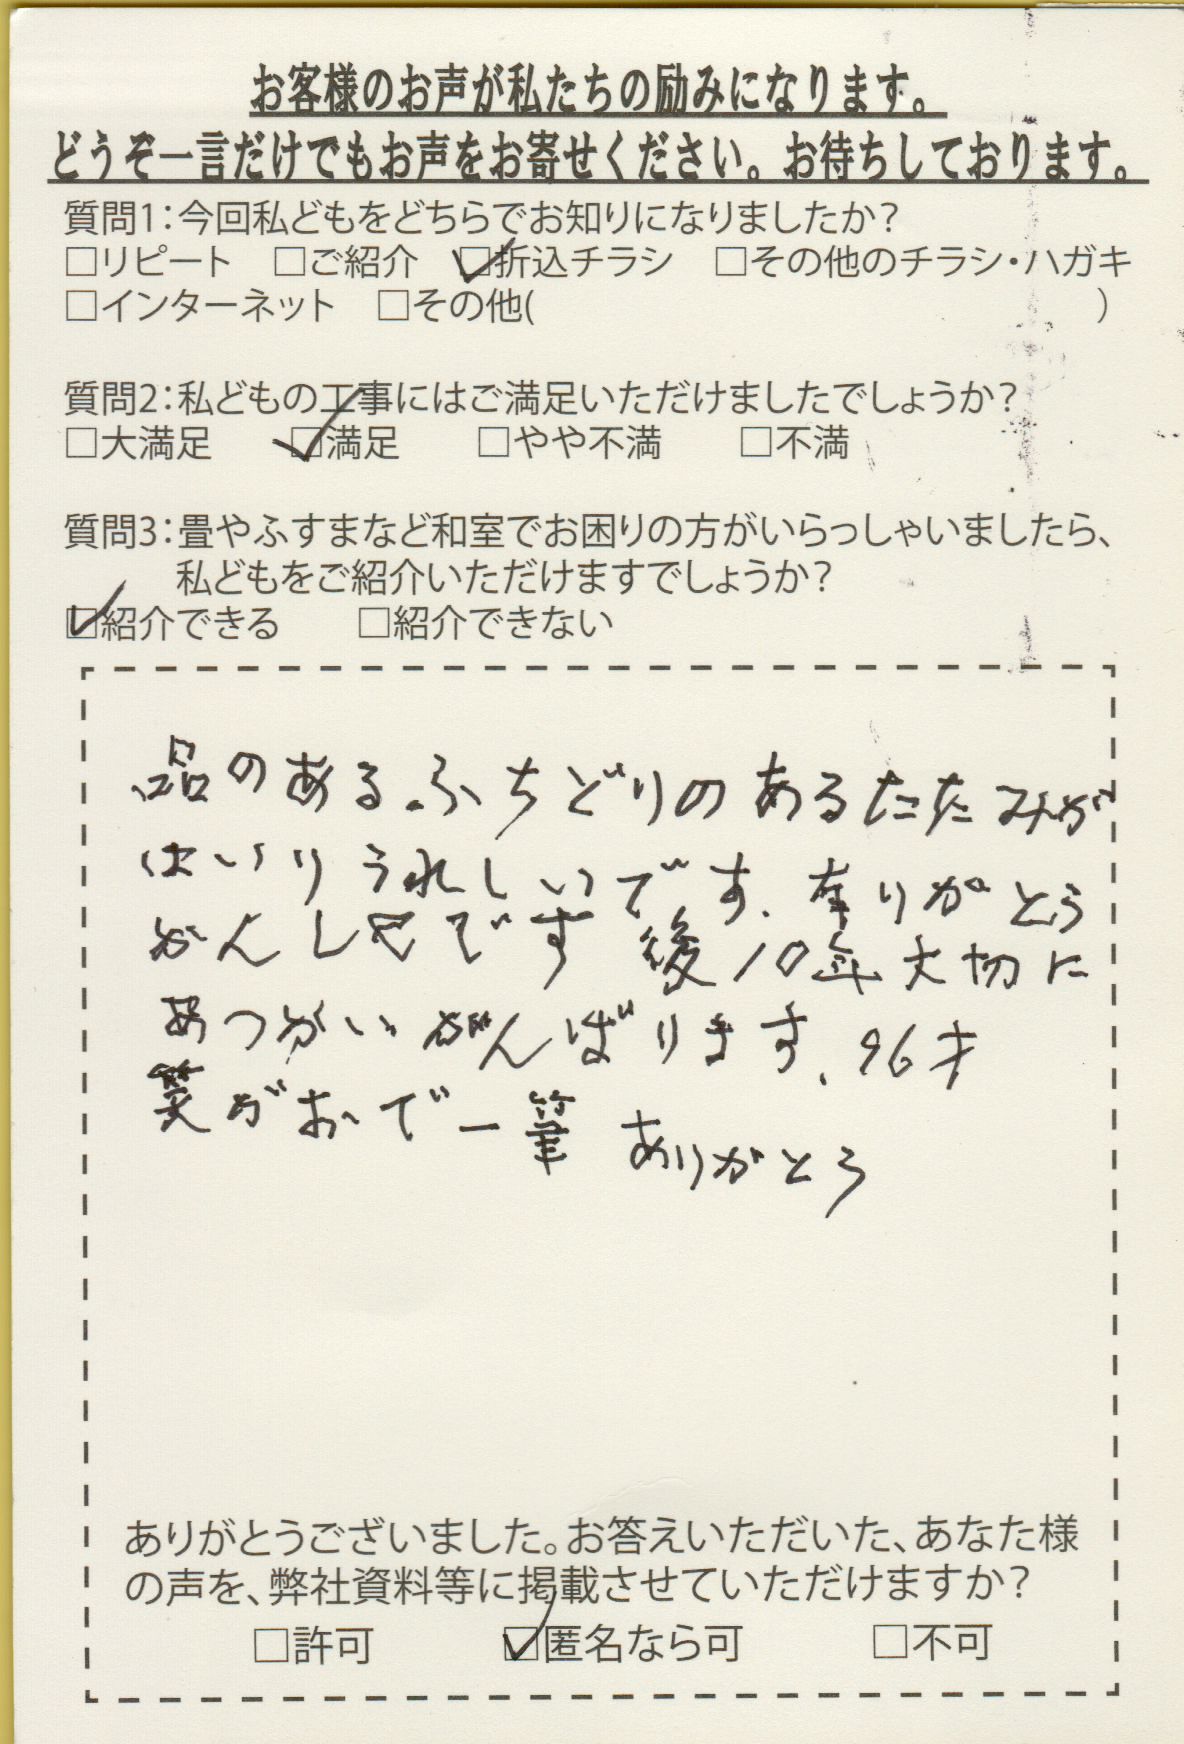 お客様のお声が私たちの励みになります。
どうぞ一言だけでもお声をお寄せください。お待ちしております。
質問1:今回私どもをどちらでお知りになりましたか?
□リピート □ご紹介 ☑折込チラシ □その他のチラシ・ハガキ
□インターネット □その他( )
質問2:私どもの工事にはご満足いただけましたでしょうか?
□大満足 ☑満足 □やや不満 □不満
質問3:畳やふすまなど和室でお困りの方がいらっしゃいましたら、
私どもをご紹介いただけますでしょうか?
☑紹介できる □紹介できない
品のある。ふちどりのあるたたみが
はいりうれしいです。有りがとう
かんしゃです 後10年大切に
あつかいがんばります。96才
笑がおで一筆 ありがとう
ありがとうございました。お答えいただいた、あなた様
の声を、弊社資料等に掲載させていただけますか?
□許可 ☑匿名なら可 □不可